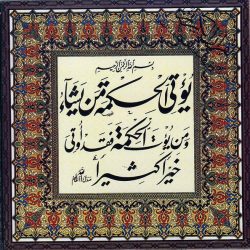 بسم الله الرحمن الرحيم
يؤتى الحكمة من يشاء
ومن يؤت الحكمة فقد أوتى
خيراً كثيراً